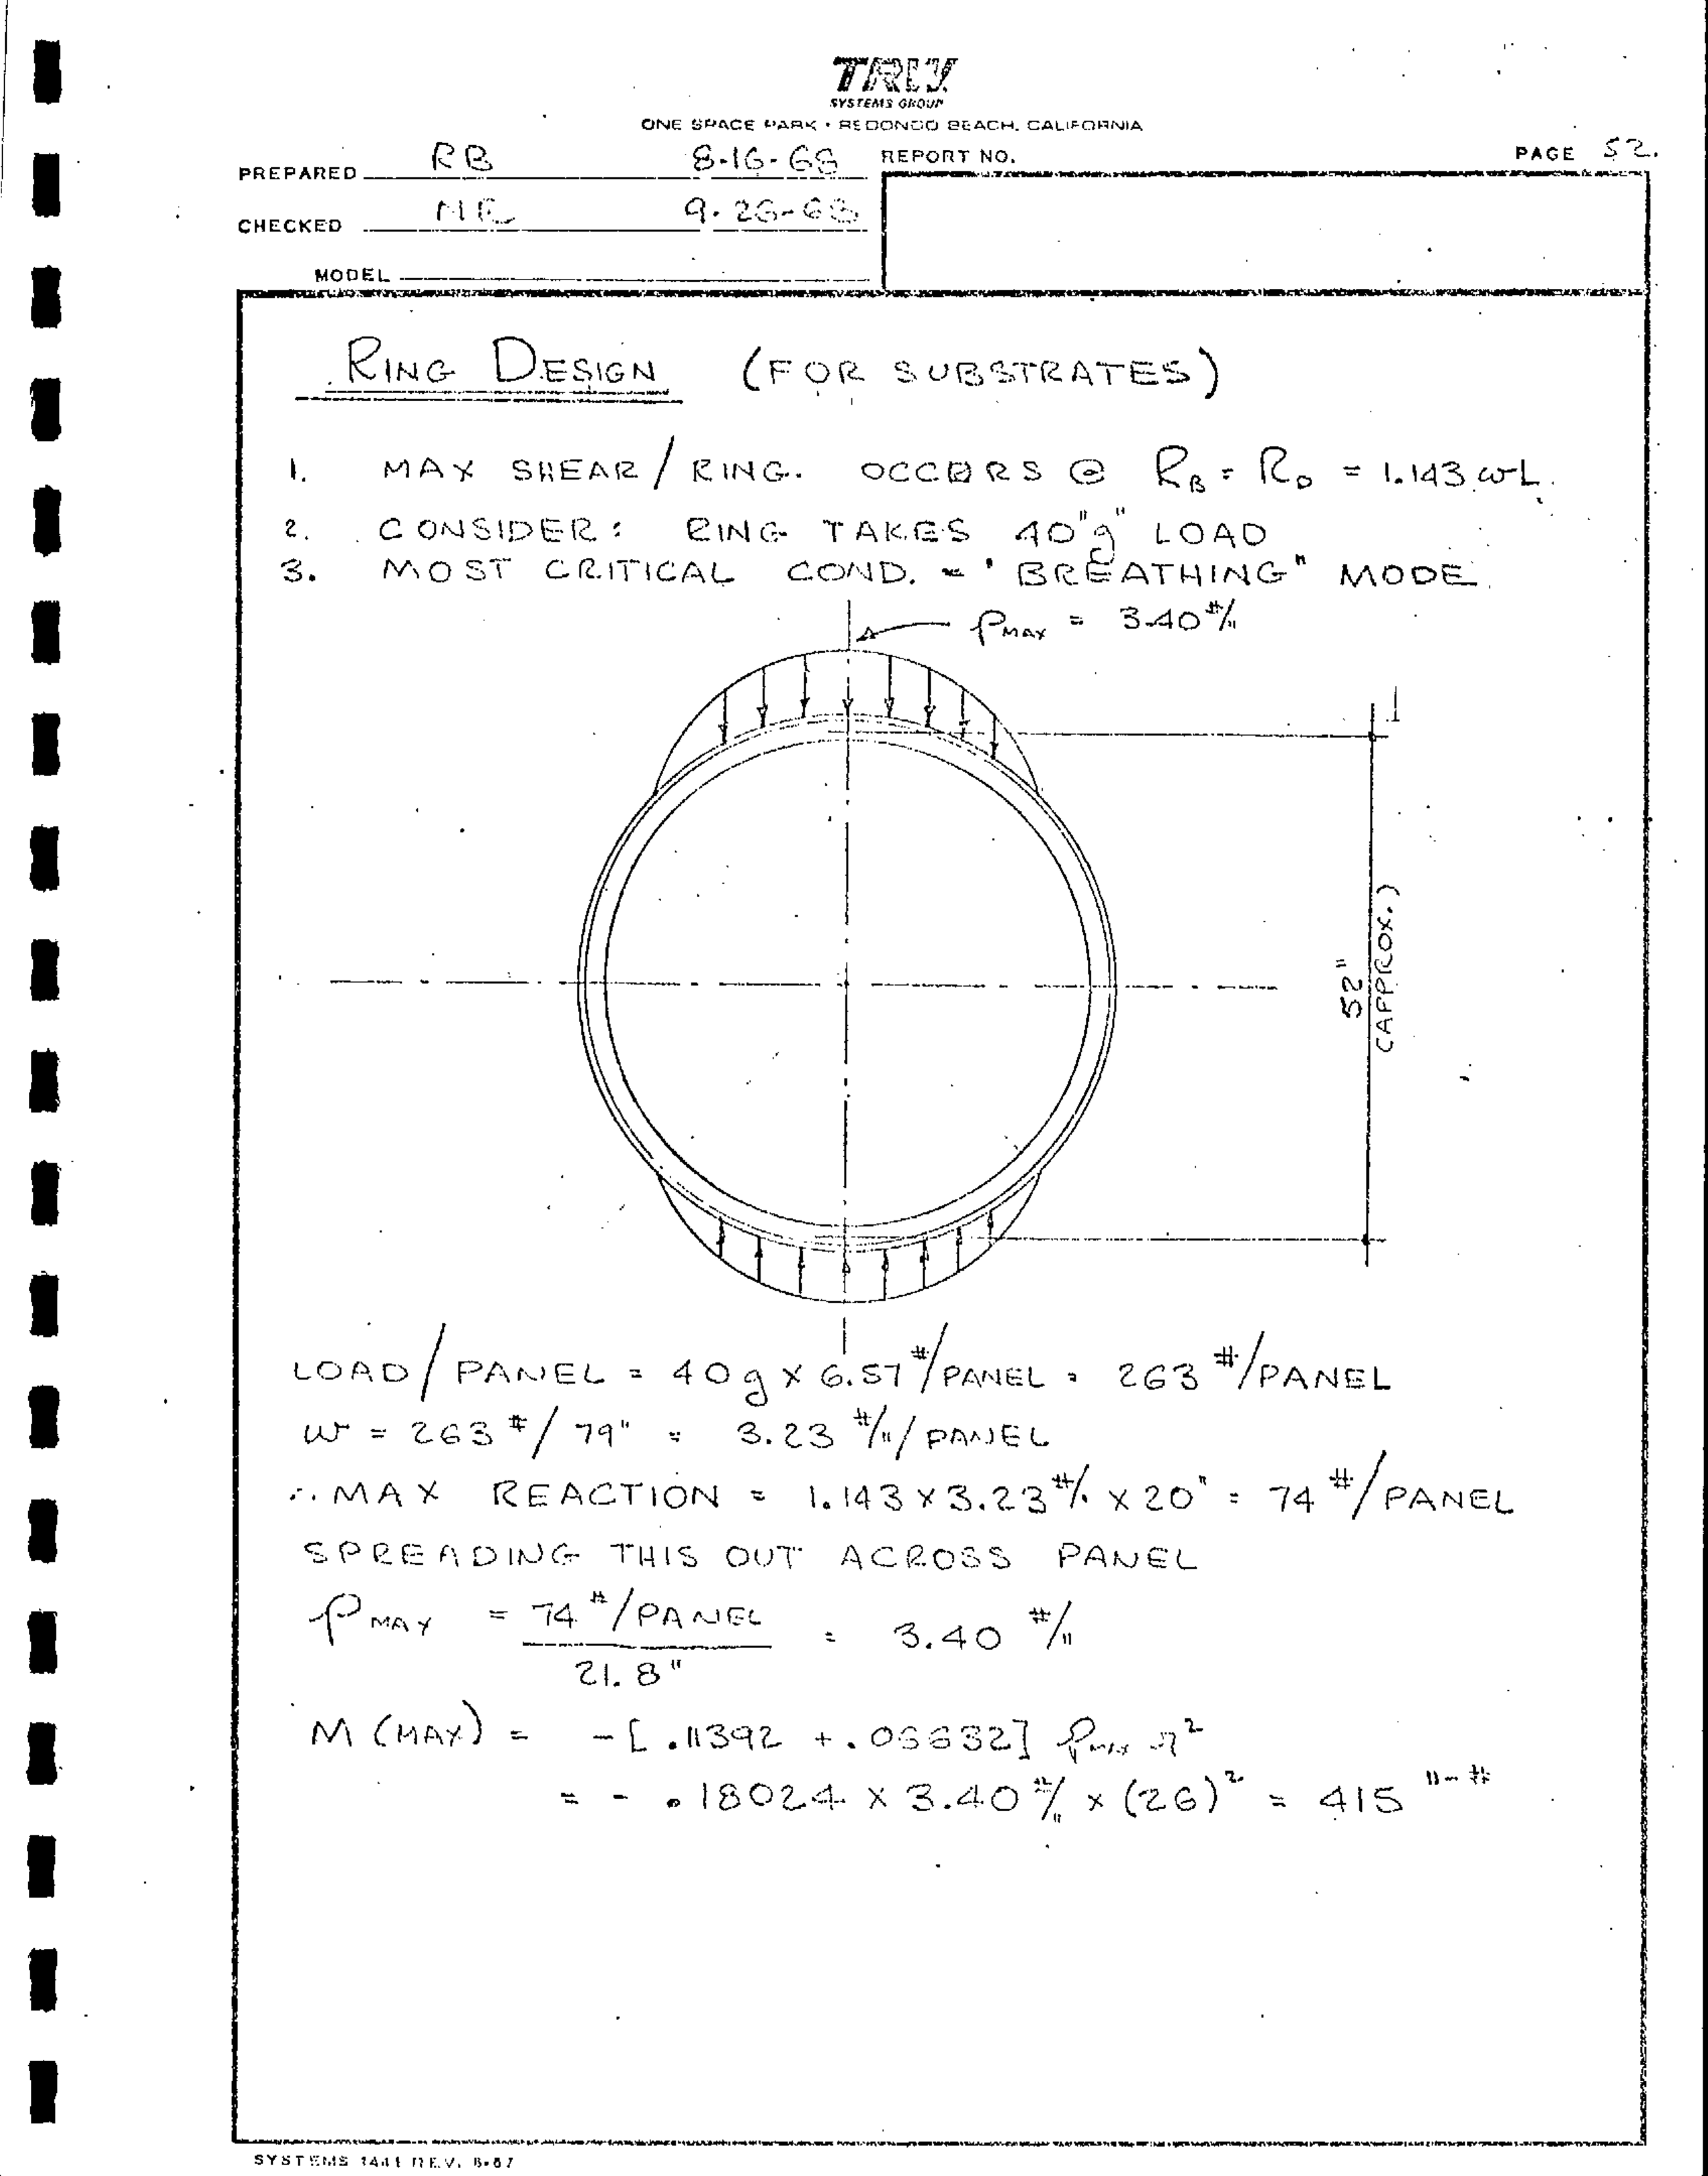 TRW
SYSTEMS GROUP
ONE SPACE PARK • REDONDO BEACH, CALIFORNIA
PREPARED RB 8-16-68 REPORT NO. PAGE 52.
CHECKED 9-23-68
MODEL
RING DESIGN (FOR SUBSTRATES)
1. MAX SHEAR/RING. OCCURS @ R_B = R_D = 1.143 wL.
2. CONSIDER: RING TAKES 40"g" LOAD
3. MOST CRITICAL COND. = "BREATHING" MODE.
P_MAX = 3.40 #/"
52"
(APPROX.)
LOAD/PANEL = 40g x 6.57 #/PANEL = 263 #/PANEL
w = 263 #/79" = 3.23 #/"/PANEL
∴ MAX REACTION = 1.143 x 3.23 #/" x 20" = 74 #/PANEL
SPREADING THIS OUT ACROSS PANEL
P_MAX = 74 #/PANEL / 21.8" = 3.40 #/"
M (MAX) = -[.11392 + .06632] P_MAX r²
= - .18024 x 3.40 #/" x (26)² = 415 "-#
SYSTEMS 1441 REV. 8-67